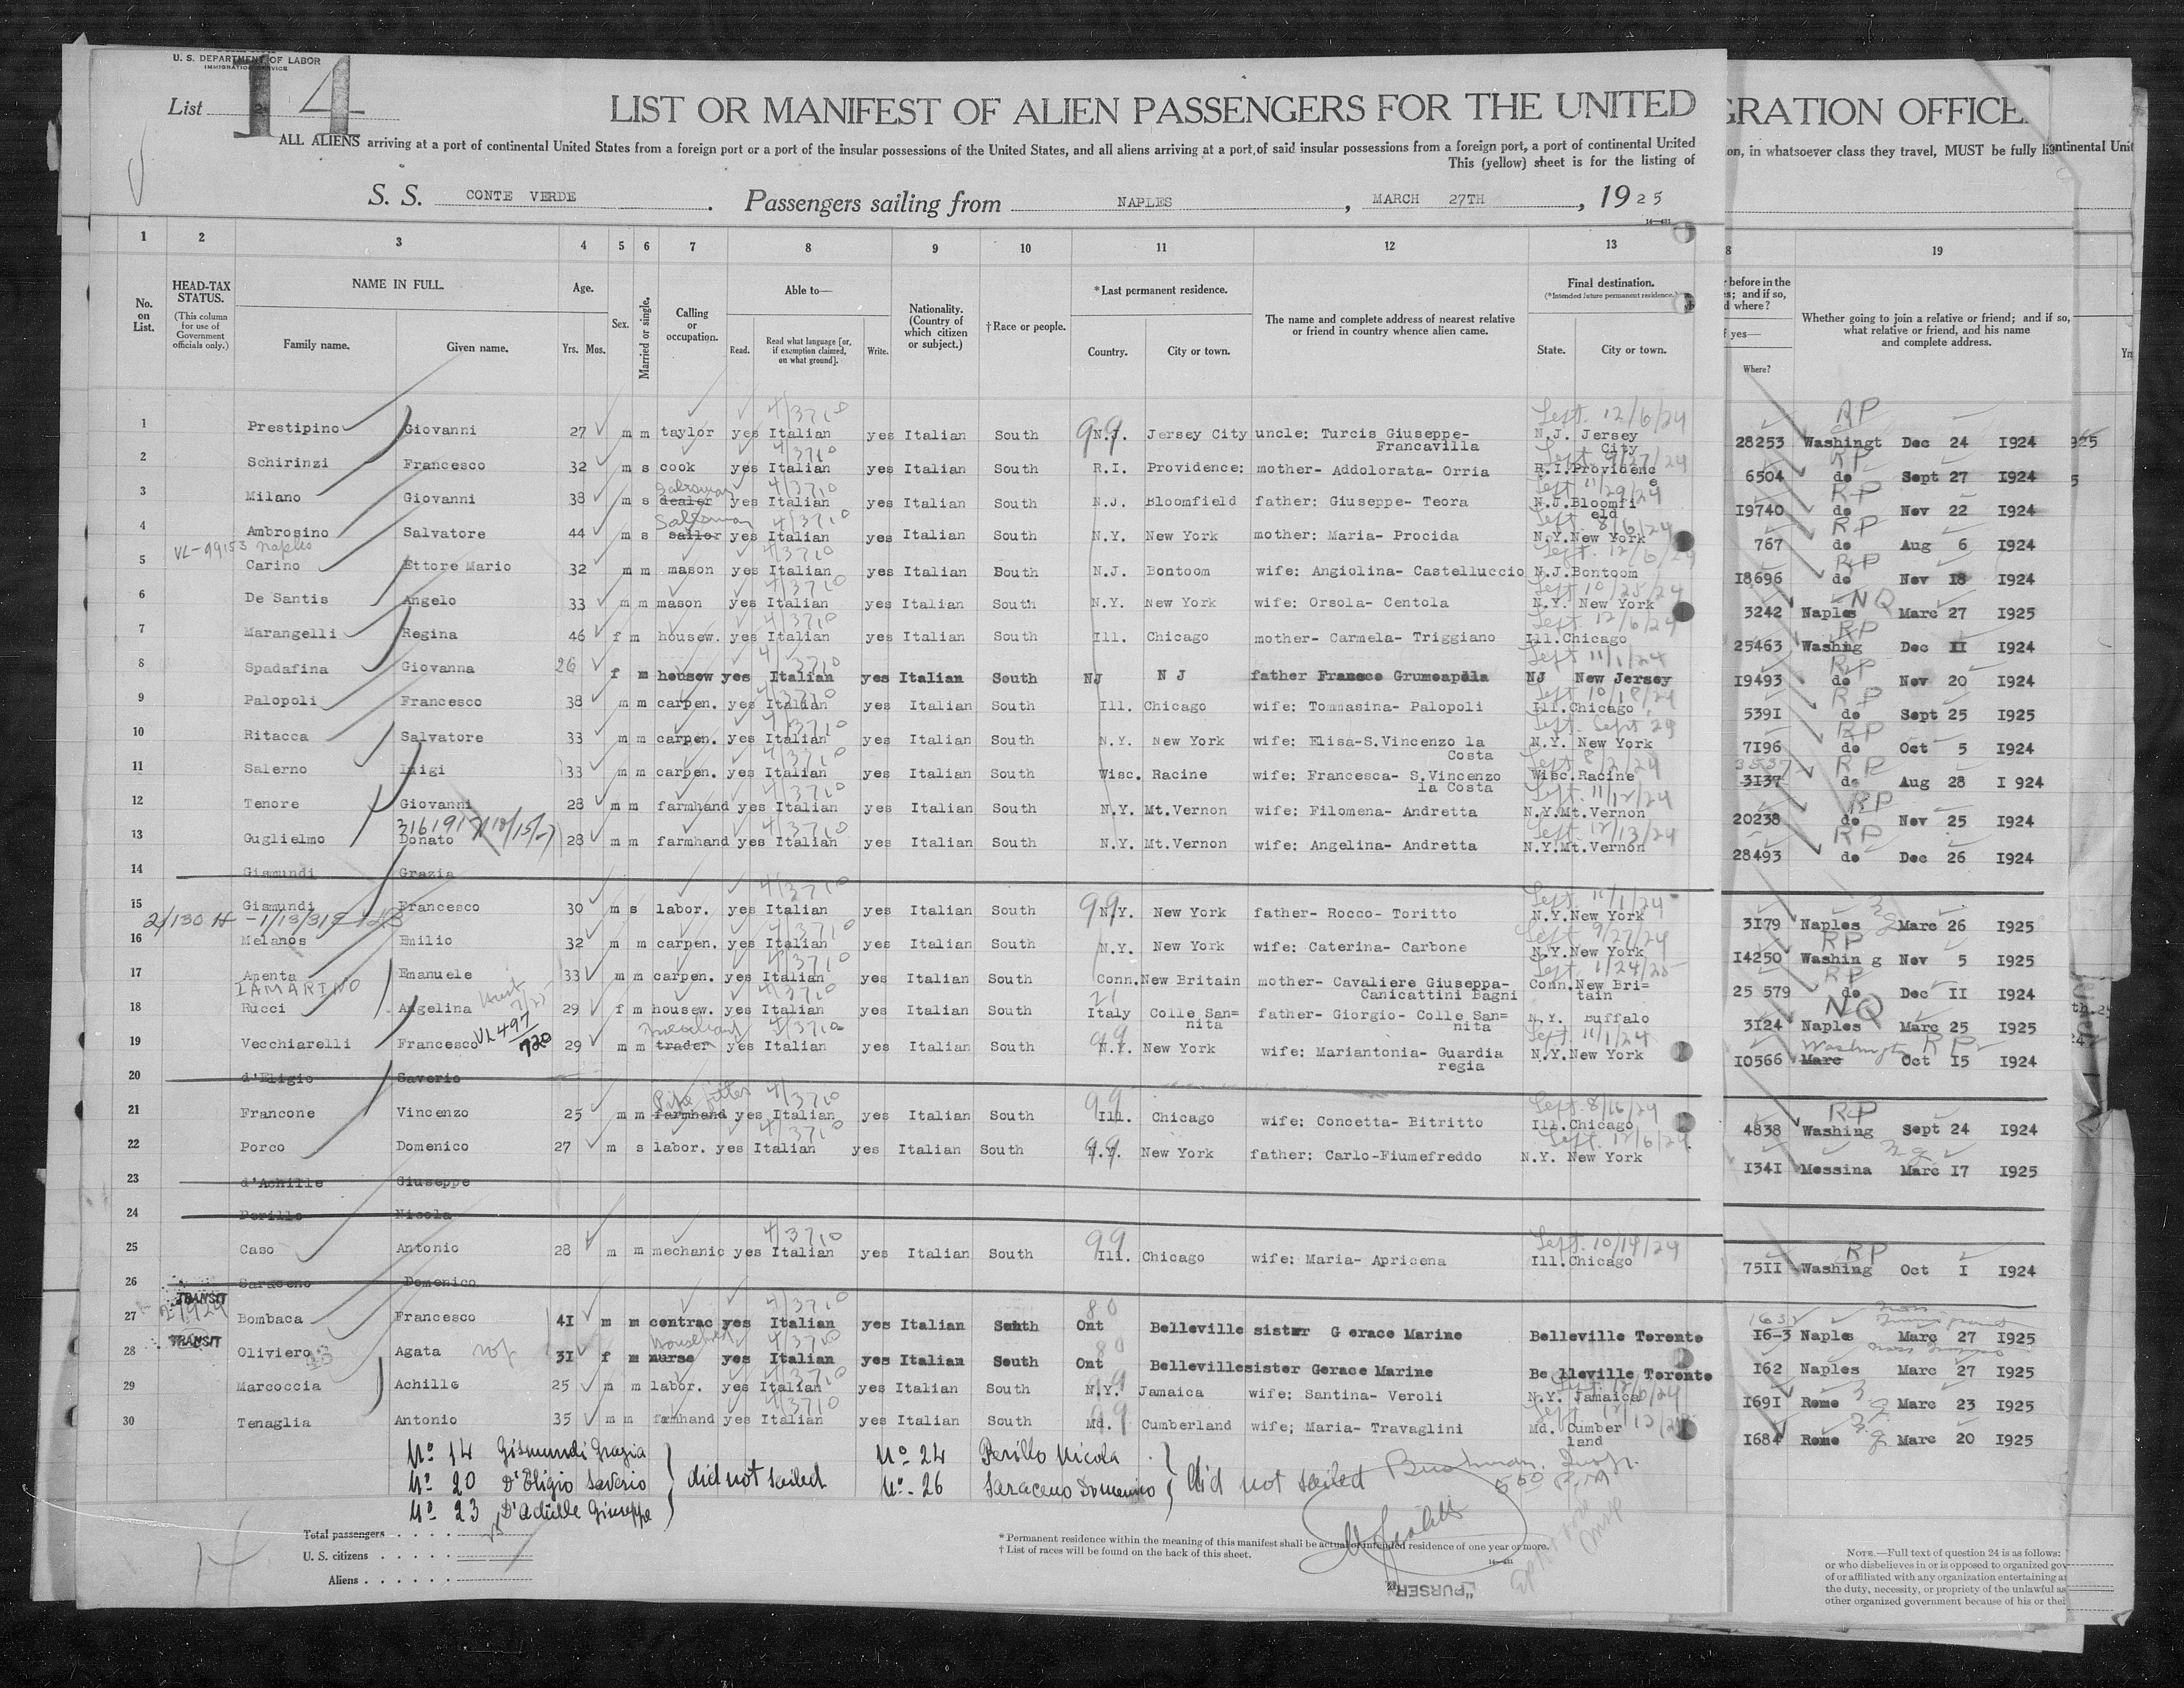 U. S. DEPARTMENT OF LABOR
IMMIGRATION SERVICE
List 14
LIST OR MANIFEST OF ALIEN PASSENGERS FOR THE UNITED
GRATION OFFICE
ALL ALIENS arriving at a port of continental United States from a foreign port or a port of the insular possessions of the United States, and all aliens arriving at a port of said insular possessions from a foreign port, a port of continental United
on, in whatsoever class they travel, MUST be fully lis
ontinental Unit
This (yellow) sheet is for the listing of
S. S. CONTE VERDE . Passengers sailing from NAPLES , MARCH 27TH , 1925
1 2 3 4 5 6 7 8 9 10 11 12 13 8 19
No. on List.
HEAD-TAX STATUS.
(This column for use of Government officials only.)
NAME IN FULL.
Family name. Given name.
Age.
Yrs. Mos.
Sex.
Married or single.
Calling or occupation.
Able to—
Read. Read what language [or, if exemption claimed, on what ground]. Write.
Nationality. (Country of which citizen or subject.)
†Race or people.
*Last permanent residence.
Country. City or town.
The name and complete address of nearest relative or friend in country whence alien came.
Final destination.
(*Intended future permanent residence.)
State. City or town.
before in the
es; and if so,
d where?
f yes—
Where?
Whether going to join a relative or friend; and if so, what relative or friend, and his name and complete address.
Sept. 12/6/24
1 Prestipino Giovanni 27 m m taylor yes Italian yes Italian South N.J. Jersey City uncle: Turcis Giuseppe- Francavilla N.J. Jersey City 28253 Washingt Dec 24 1924
Sept 9/27/24
2 Schirinzi Francesco 32 m s cook yes Italian yes Italian South R.I. Providence: mother- Addolorata- Orria R.I.Providenc e 6504 do Sept 27 1924
Sept 11/29/24
3 Milano Giovanni 38 m s dealer yes Italian yes Italian South N.J. Bloomfield father: Giuseppe- Teora N.J.Bloomfi eld 19740 do Nov 22 1924
Sept 8/6/24
4 Ambrosino Salvatore 44 m s sailor yes Italian yes Italian South N.Y. New York mother: Maria- Procida N.Y.New York 767 do Aug 6 1924
VL-99153 Naples
Sept. 12/6/24
5 Carino Ettore Mario 32 m m mason yes Italian yes Italian Bouth N.J. Bontoom wife: Angiolina- Castelluccio N.J.Bontoom 18696 do Nov 18 1924
Sept 10/25/24
6 De Santis Angelo 33 m m mason yes Italian yes Italian South N.Y. New York wife: Orsola- Centola N.Y. New York 3242 Naples NQ Marc 27 1925
Sept. 12/6/24
7 Marangelli Regina 46 f m housew. yes Italian yes Italian South Ill. Chicago mother- Carmela- Triggiano Ill.Chicago 25463 Washing RP Dec II 1924
Sept 11/1/24
8 Spadafina Giovanna 26 f m housew yes Italian yes Italian South NJ N J father Fransco Grumoapula NJ New Jersey 19493 do RP Nov 20 1924
Sept 10/18/24
9 Palopoli Francesco 38 m m carpen. yes Italian yes Italian South Ill. Chicago wife: Tommasina- Palopoli Ill.Chicago 5391 do RP Sept 25 1925
10 Ritacca Salvatore 33 m m carpen. yes Italian yes Italian South N.Y. New York wife: Elisa-S.Vincenzo la Costa N.Y. New York 7196 do RP Oct 5 1924
Sept 8/2/24
11 Salerno Luigi 33 m m carpen. yes Italian yes Italian South Wisc. Racine wife: Francesca- S.Vincenzo la Costa Wisc.Racine 3137 do RP Aug 28 I 924
Sept. 11/12/24
12 Tenore Giovanni 28 m m farmhand yes Italian yes Italian South N.Y. Mt.Vernon wife: Filomena- Andretta N.Y.Mt.Vernon 20238 do RP Nov 25 1924
Sept 12/13/24
13 Guglielmo Donato 28 m m farmhand yes Italian yes Italian South N.Y. Mt.Vernon wife: Angelina- Andretta N.Y.Mt.Vernon 28493 do RP Dec 26 1924
14 Gismundi Grazia
Sept. 11/1/24
15 Gismundi Francesco 30 m s labor. yes Italian yes Italian South N.Y. New York father- Rocco- Toritto N.Y.New York 3179 Naples Marc 26 1925
Sept 9/27/24
16 Melanos Emilio 32 m m carpen. yes Italian yes Italian South N.Y. New York wife: Caterina- Carbone N.Y.New York 14250 Washin g RP Nov 5 1925
Sept. 1/24/25
17 Amenta Emanuele 33 m m carpen. yes Italian yes Italian South Conn.New Britain mother- Cavaliere Giuseppa- Canicattini Bagni Conn.New Bri= tain 25 579 do RP Dec II 1924
IAMARINO
18 Rucci Angelina 29 f m housew. yes Italian yes Italian South Italy Colle San= nita father- Giorgio- Colle San= nita N.Y. Buffalo 3124 Naples NQ Marc 25 1925
VL 497/720
Sept 11/1/24
19 Vecchiarelli Francesco 29 m m trader yes Italian yes Italian South N.Y. New York wife: Mariantonia- Guardia regia N.Y.New York 10566 Marc Washington RP Oct 15 1924
20 d'Eligio Saverio
Pipe fitter
Sept. 8/16/24
21 Francone Vincenzo 25 m m farmhand yes Italian yes Italian South Ill. Chicago wife: Concetta- Bitritto Ill.Chicago 4838 Washing RP Sept 24 1924
Sept. 12/6/24
22 Porco Domenico 27 m s labor. yes Italian yes Italian South N.Y. New York father: Carlo-Fiumefreddo N.Y. New York 1341 Messina Marc 17 1925
23 d'Achille Giuseppe
24 Perillo Nicola
Sept. 10/14/24
25 Caso Antonio 28 m m mechanic yes Italian yes Italian South Ill. Chicago wife: Maria- Apricena Ill.Chicago 7511 Washing RP Oct I 1924
26 Saraceno Domenico
TRANSIT
27 Bombaca Francesco 41 m m contrac yes Italian yes Italian South Ont Belleville sister G erace Marine Belleville Toronto 16-3 Naples Marc 27 1925
TRANSIT
28 Oliviero Agata 31 f m nurse yes Italian yes Italian South Ont Belleville sister Gerace Marine Be lleville Toronto 162 Naples Marc 27 1925
29 Marcoccia Achille 25 m m labor. yes Italian yes Italian South N.Y. Jamaica wife: Santina- Veroli N.Y. Jamaica 1691 Rome Marc 23 1925
30 Tenaglia Antonio 35 m m farmhand yes Italian yes Italian South Md. Cumberland wife; Maria- Travaglini Md. Cumber land 1684 Rome Marc 20 1925
No 14 Gismundi Grazia
No 20 D'Eligio Saverio
No 23 D'Achille Giuseppe
did not sailed
No 24 Perillo Nicola
No. 26 Saraceno Domenico
did not sailed
Total passengers
U. S. citizens
Aliens
* Permanent residence within the meaning of this manifest shall be actual or intended residence of one year or more.
† List of races will be found on the back of this sheet.
"PURSER"
NOTE.—Full text of question 24 is as follows:
or who disbelieves in or is opposed to organized gov
of or affiliated with any organization entertaining a
the duty, necessity, or propriety of the unlawful as
other organized government because of his or thei